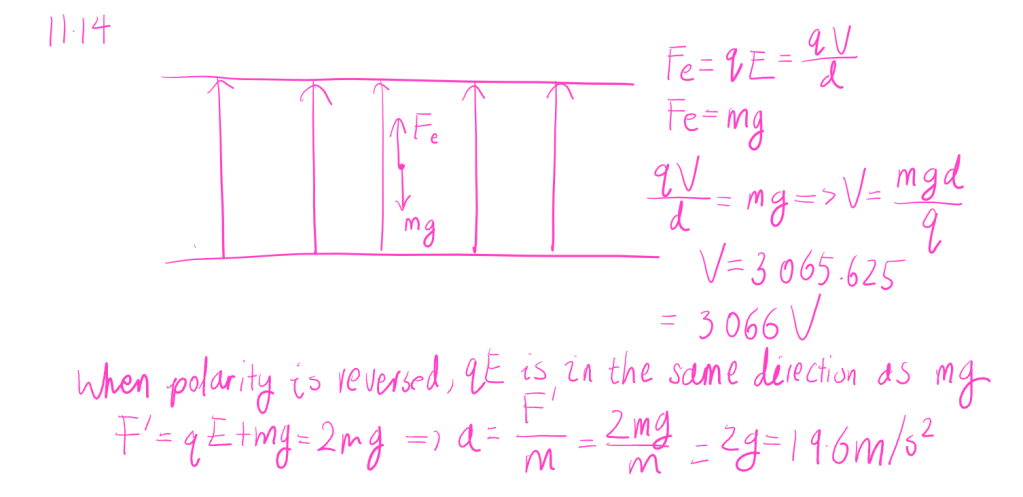 11.14
Fe = qE = qV/d
Fe = mg
Fe
mg
qV/d = mg => V = mgd/q
V = 3065.625
= 3066 V
When polarity is reversed, qE is in the same direction as mg
F' = qE + mg = 2mg => a = F'/m = 2mg/m = 2g = 19.6 m/s²